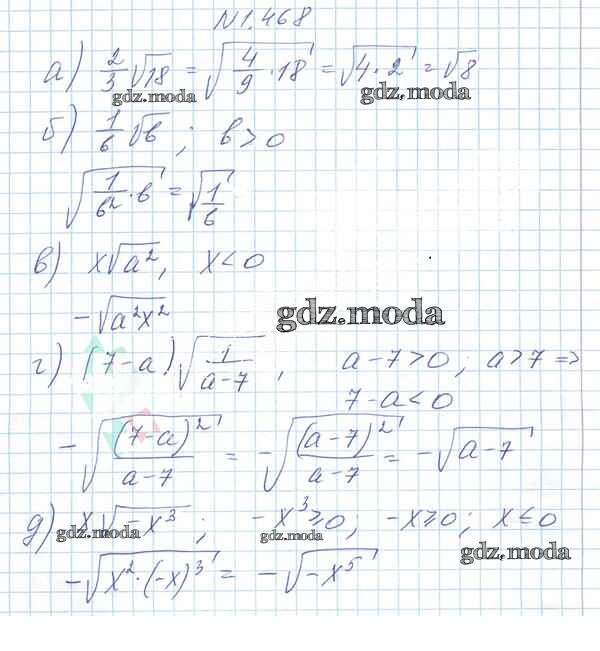 N1.468
а) 2/3 √18 = √(4/9 · 18) = √(4 · 2) = √8
gdz.moda gdz.moda
б) 1/в √в ; в > 0
√(1/в² · в) = √(1/в)
в) x√a², x < 0
-√(a²x²)
gdz.moda
г) (7-a)√(1/(a-7)), a-7>0; a>7 =>
7-a<0
-√((7-a)²/(a-7)) = -√((a-7)²/(a-7)) = -√(a-7)
д) x√(-x³) ; -x³≥0; -x≥0; x≤0
gdz.moda gdz.moda gdz.moda
-√(x²·(-x)³) = -√(-x⁵)